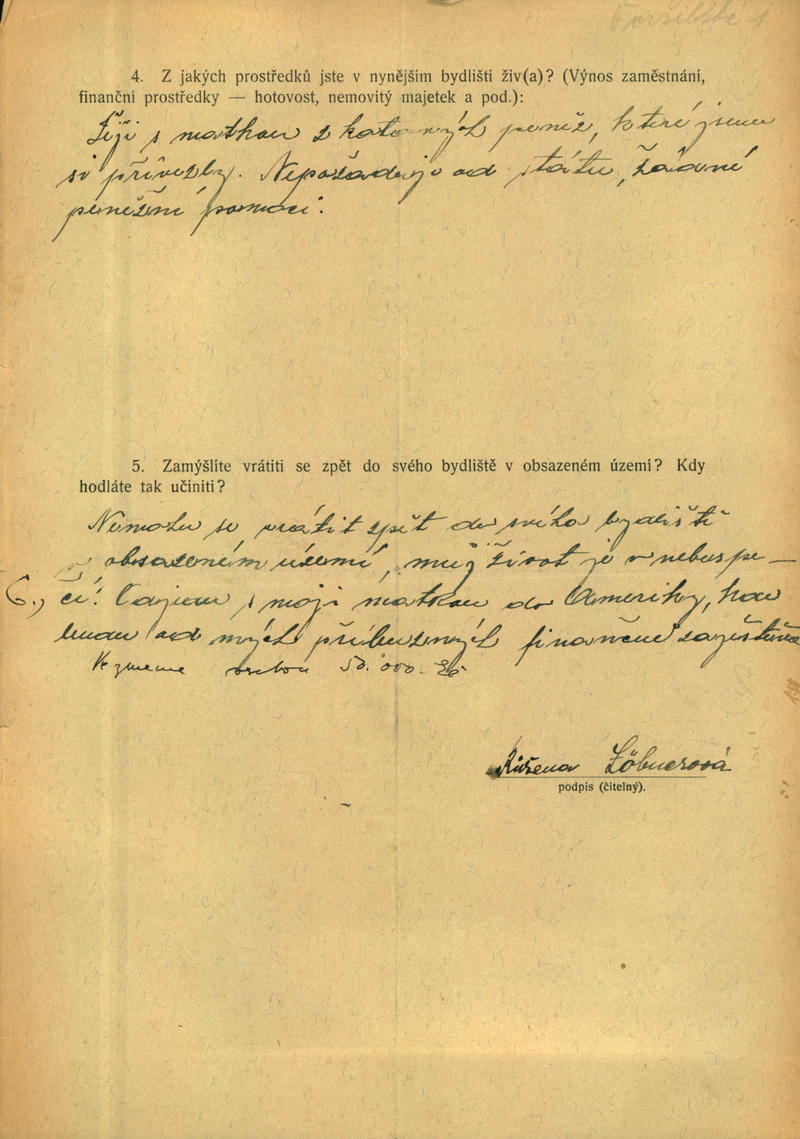 4. Z jakých prostředků jste v nynějším bydlišti živ(a)? (Výnos zaměstnání,
finanční prostředky — hotovost, nemovitý majetek a pod.):
Žiji s matkou z hotových peněz, které jsme
si přivezly. Nepožaduji od státu, žádné
peněžní pomoci.
5. Zamýšlíte vrátiti se zpět do svého bydliště v obsazeném území? Kdy
hodláte tak učiniti?
Nemohu se vrátit zpět do svého bydliště
v obsazeném území, můj život je v nebezpe—
čí! s mojí matkou do Ameriky,
od mých příbuzných finančně
50.000.
Růžena Löbnerová
podpis (čitelný).